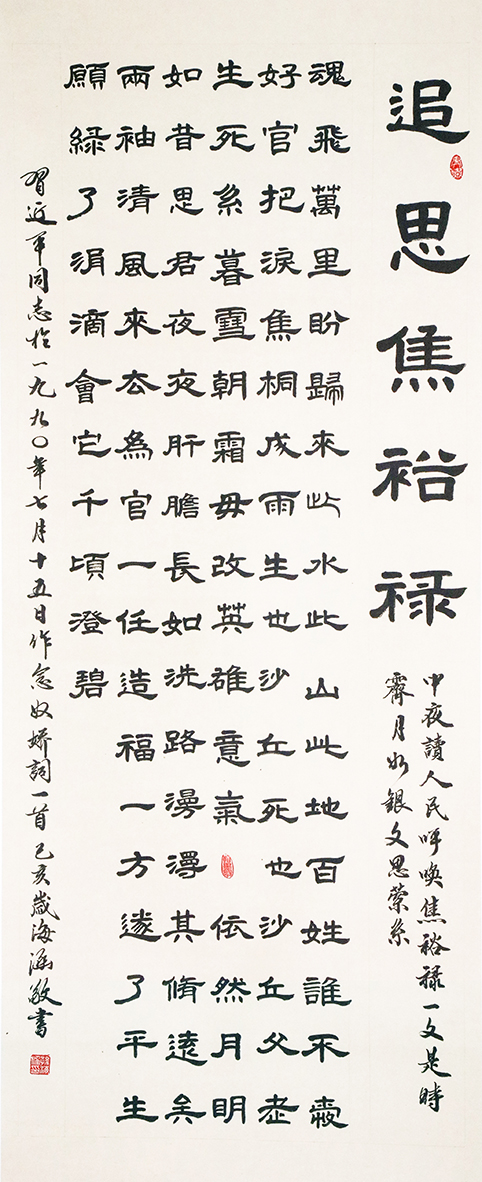 追思焦裕禄
中夜讀人民呼喚焦裕禄一文是時
霽月如銀文思縈系
魂飛萬里盼歸來此水此山此地百姓誰不愛
好官把淚焦桐成雨生也沙丘死也沙丘父老
生死系暮雪朝霜毋改英雄意氣依然月明
如昔思君夜夜肝膽長如洗路漫漫其脩遠矣
兩袖清風來去爲官一任造福一方遂了平生
願綠了涓滴會它千頃澄碧
習近平同志於一九九〇年七月十五日作念奴嬌詞一首 己亥歲海涵敬書